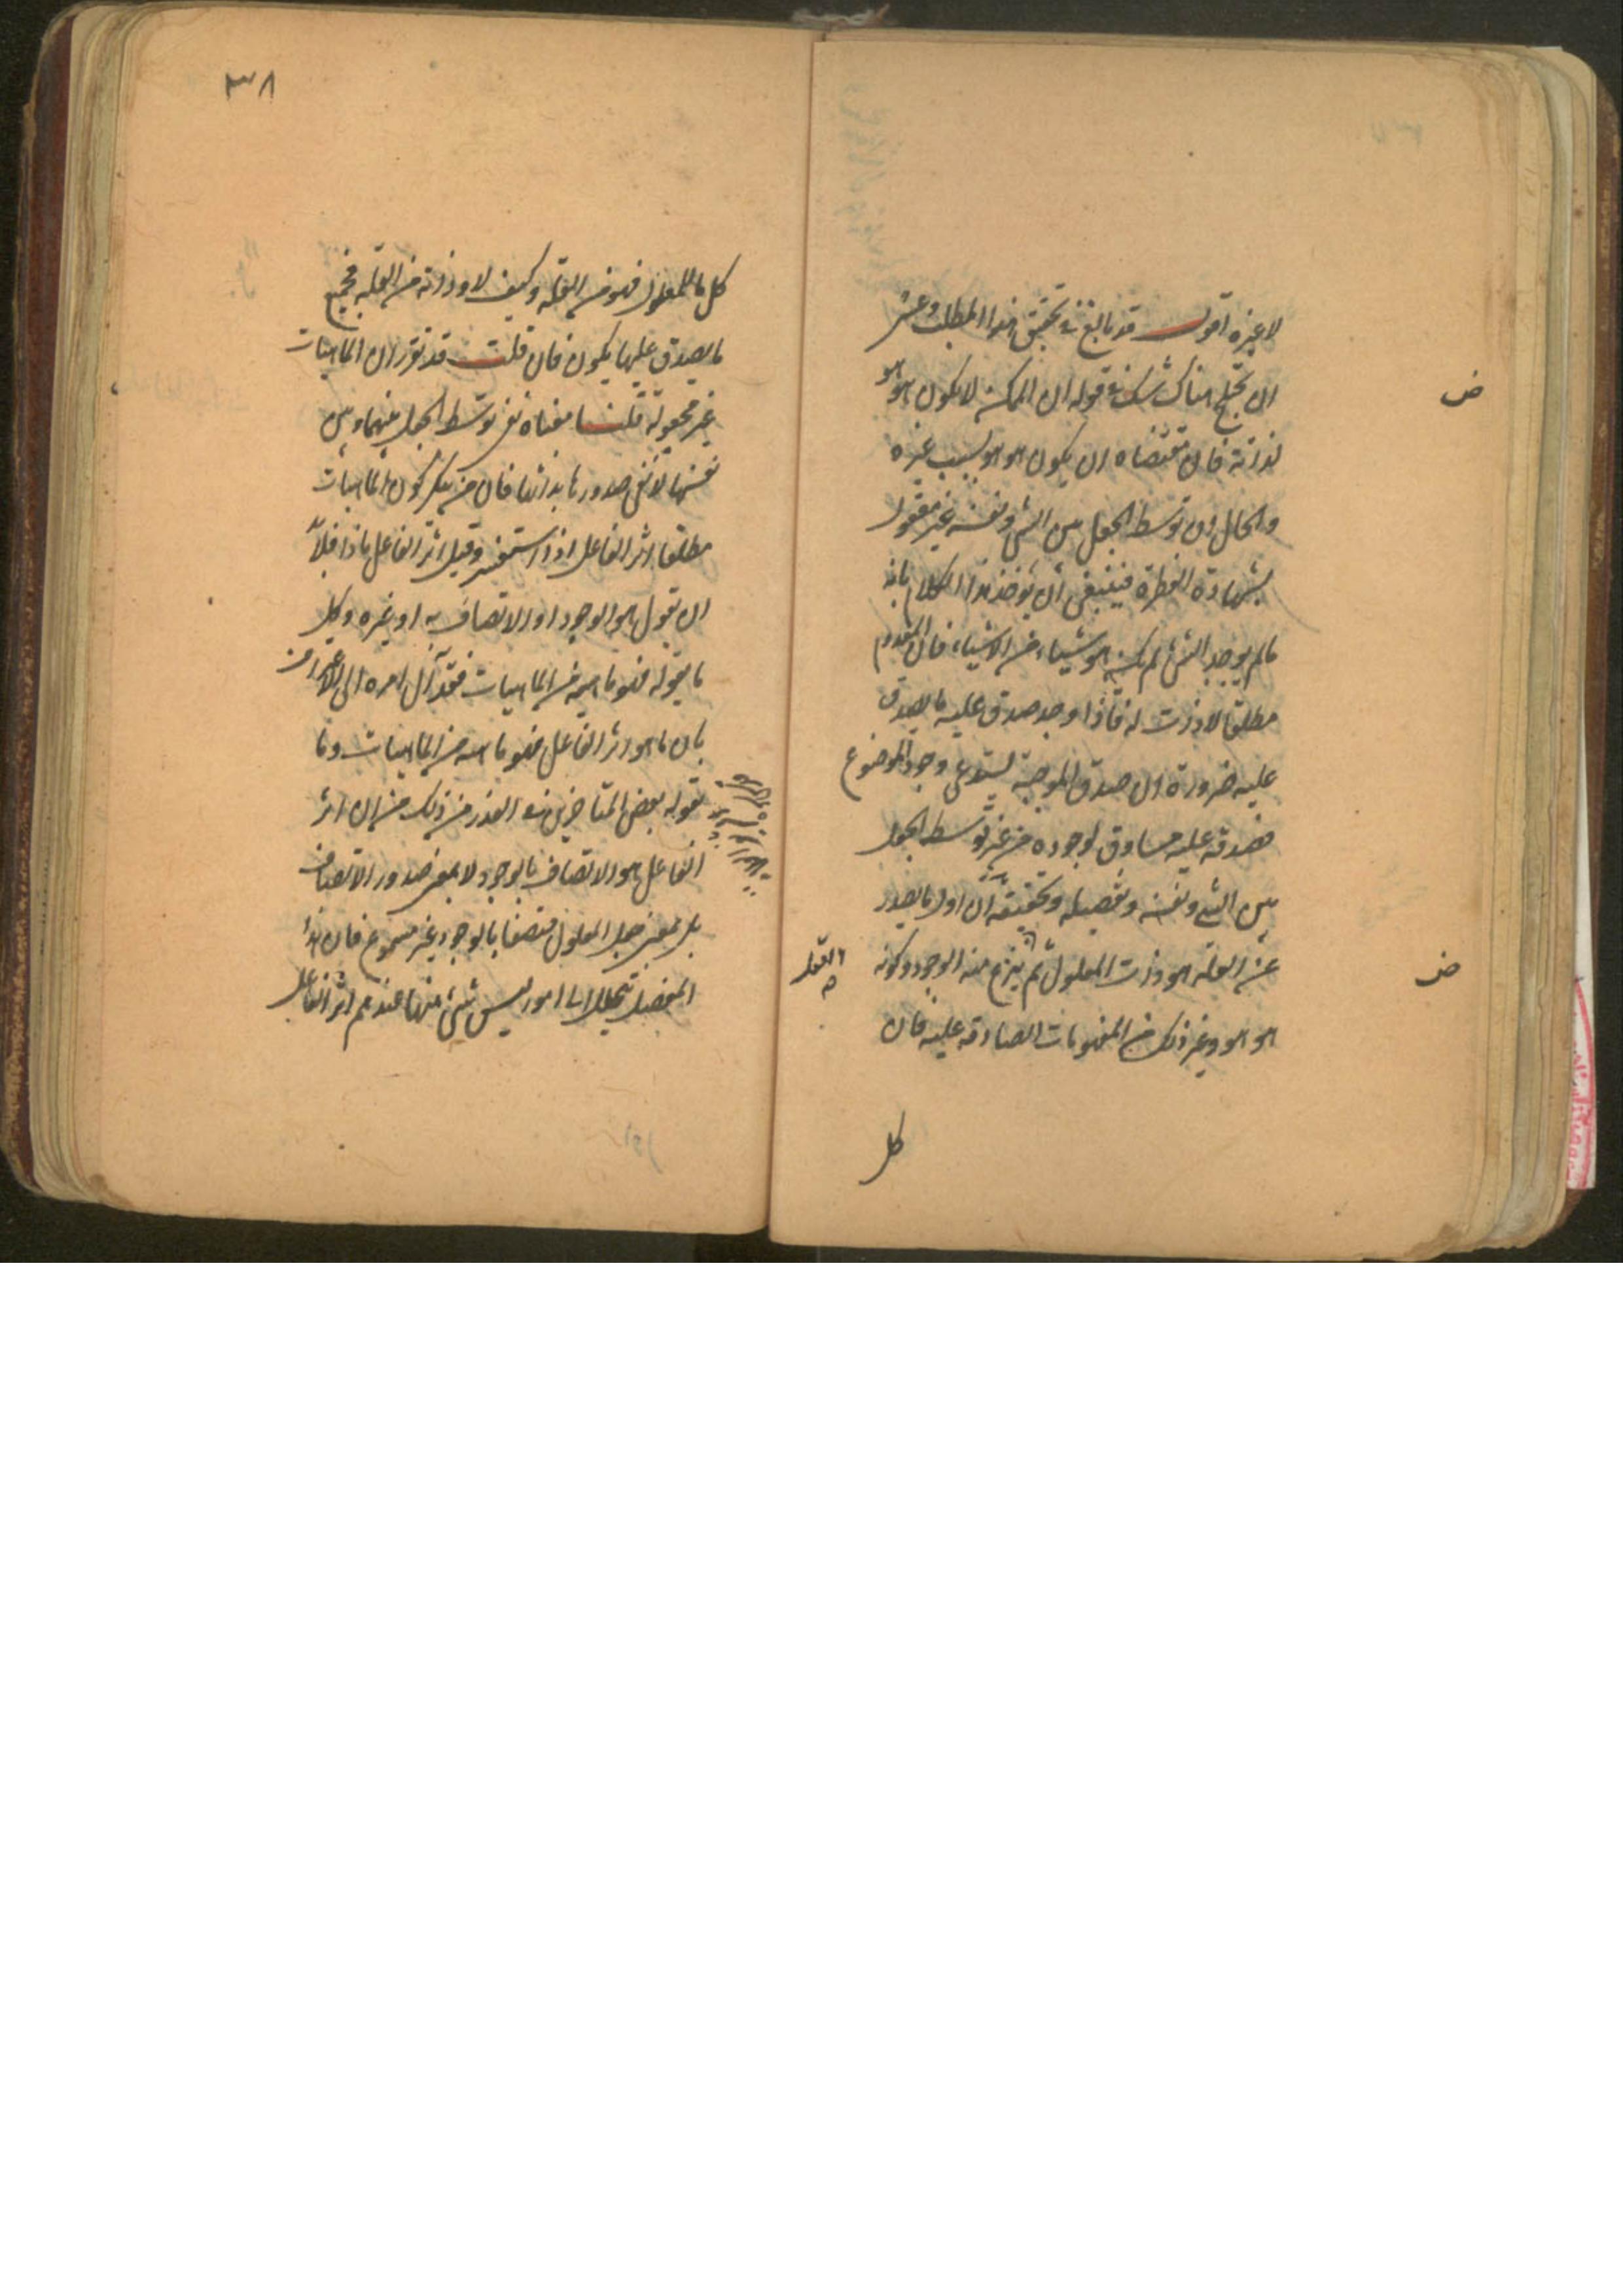 لا غيره اقول قد بالغ في تحقيق هذا المطلب وعسى
ان يختلج هناك شك في قوله ان الممكن لا يكون هو هو
لذاته فان مقتضاه ان يكون هو هو بسبب غيره
والحال ان توسط الجعل بين الشيء ونفسه غير معقول
بشهادة الفطرة فينبغي ان يؤخذ هذا الكلام بانه
ما لم يوجد الشيء لم يكن هو شيئا من الاشياء فان المعدوم
مطلقا لا ذات له فاذا وجد صدق عليه ما يصدق
عليه ضرورة ان صدق الموجبة يستدعي وجود الموضوع
فصدقه عليه مساوق لوجوده من غير توسط الجعل
بين الشيء ونفسه وتفصيله وتحقيقه ان اول ما يصدر
عن العلة هو ذات المعلول ثم ينتزع منه الوجود وكونه
العقل
هو هو وغير ذلك من المفهومات الصادقة عليه فان
ض
ض
كل
٣٨
كل ما للمعلول فهو من العلة وكيف لا وذاته من العلة فجميع
ما يصدق عليها يكون فان قلت قد تقرر ان الماهيات
غير مجعولة قلنا معناه نفي توسط الجعل بينها وبين
نفسها لا نفي صدورها بذاتها فان من ينكر كون الماهيات
مطلقا اثر الفاعل اذا استفسر وقيل اثر الفاعل ماذا فلا بد
ان يقول هو الوجود او الاتصاف به او غيره وكل
ما يقوله فهو ماهية من الماهيات فقد آل امره الى الاعتراف
بان ما هو اثر الفاعل فهو ماهية من الماهيات وما
يقوله بعض المتاخرين في العذر من ذلك من ان اثر
الفاعل هو الاتصاف بالوجود لا بمعنى صدور الاتصاف
بل بمعنى جعل المعلول متصفا بالوجود غير مسموع فان هذا
المفصل يتحلل الى امور ليس شيء منها عندهم اثر الفاعل